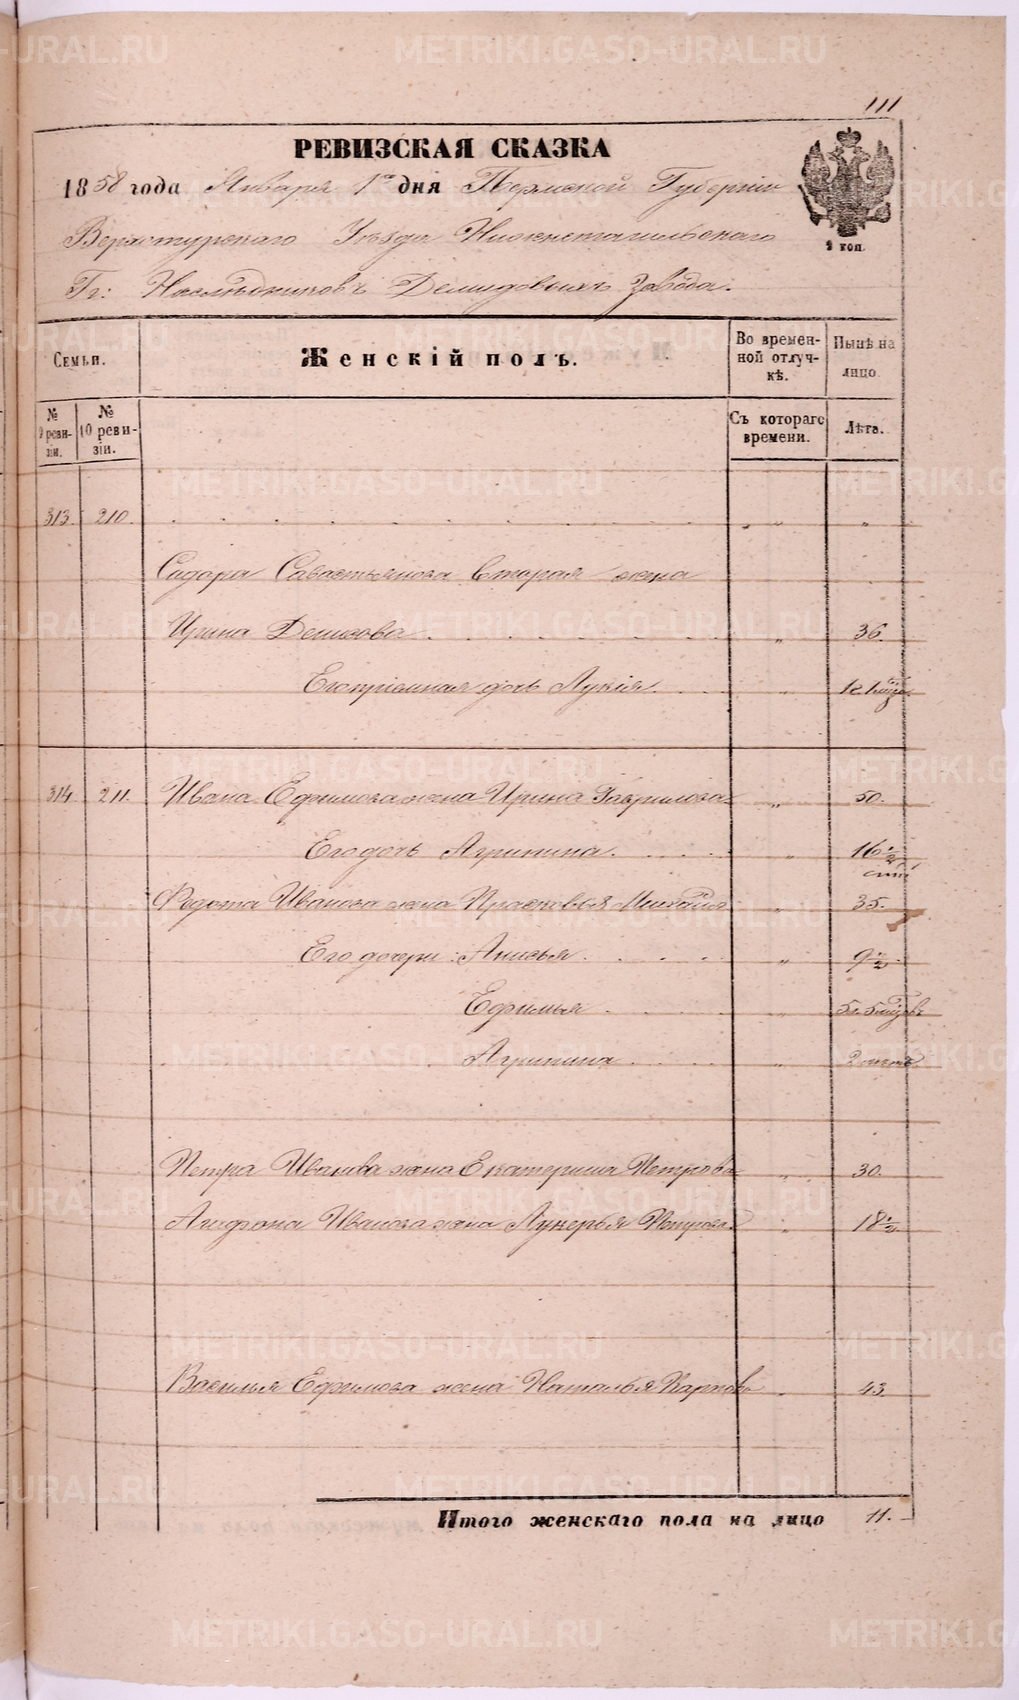 111
РЕВИЗСКАЯ СКАЗКА
1858 года Января 1го дня Пермской Губернiи
Верхотурскаго Уѣзда Нижнетагильскаго
Гг: Наслѣдниковъ Демидовыхъ Завода.
2 коп.
Семьи. Женскій полъ. Во временной отлучкѣ. Нынѣ на лицо.
№ 9 ревизіи. № 10 ревизіи. Съ котораго времени. Лѣта.
313. 210. „ „
Сидора Савастьянова вторая жена
Ирина Денисова „ 36.
Его приемная дочь Лукія „
314. 211. Ивана Ефимова жена Ирина Гаврилова „ 50.
Его дочь Агрипина „ 16 1/2
Федота Ивана жена Прасковья „ 35.
Его дочери: Анисья „ 9 1/2
Ефимья „ 5
Агрипина „ 2
Петра Иванова жена Екатерина Петрова „ 30.
Агафона Иванова жена Лукерья Петрова „ 18 1/2
Василья Ефимова жена Наталья „ 43.
Итого женскаго пола на лицо 11.
METRIKI.GASO-URAL.RU